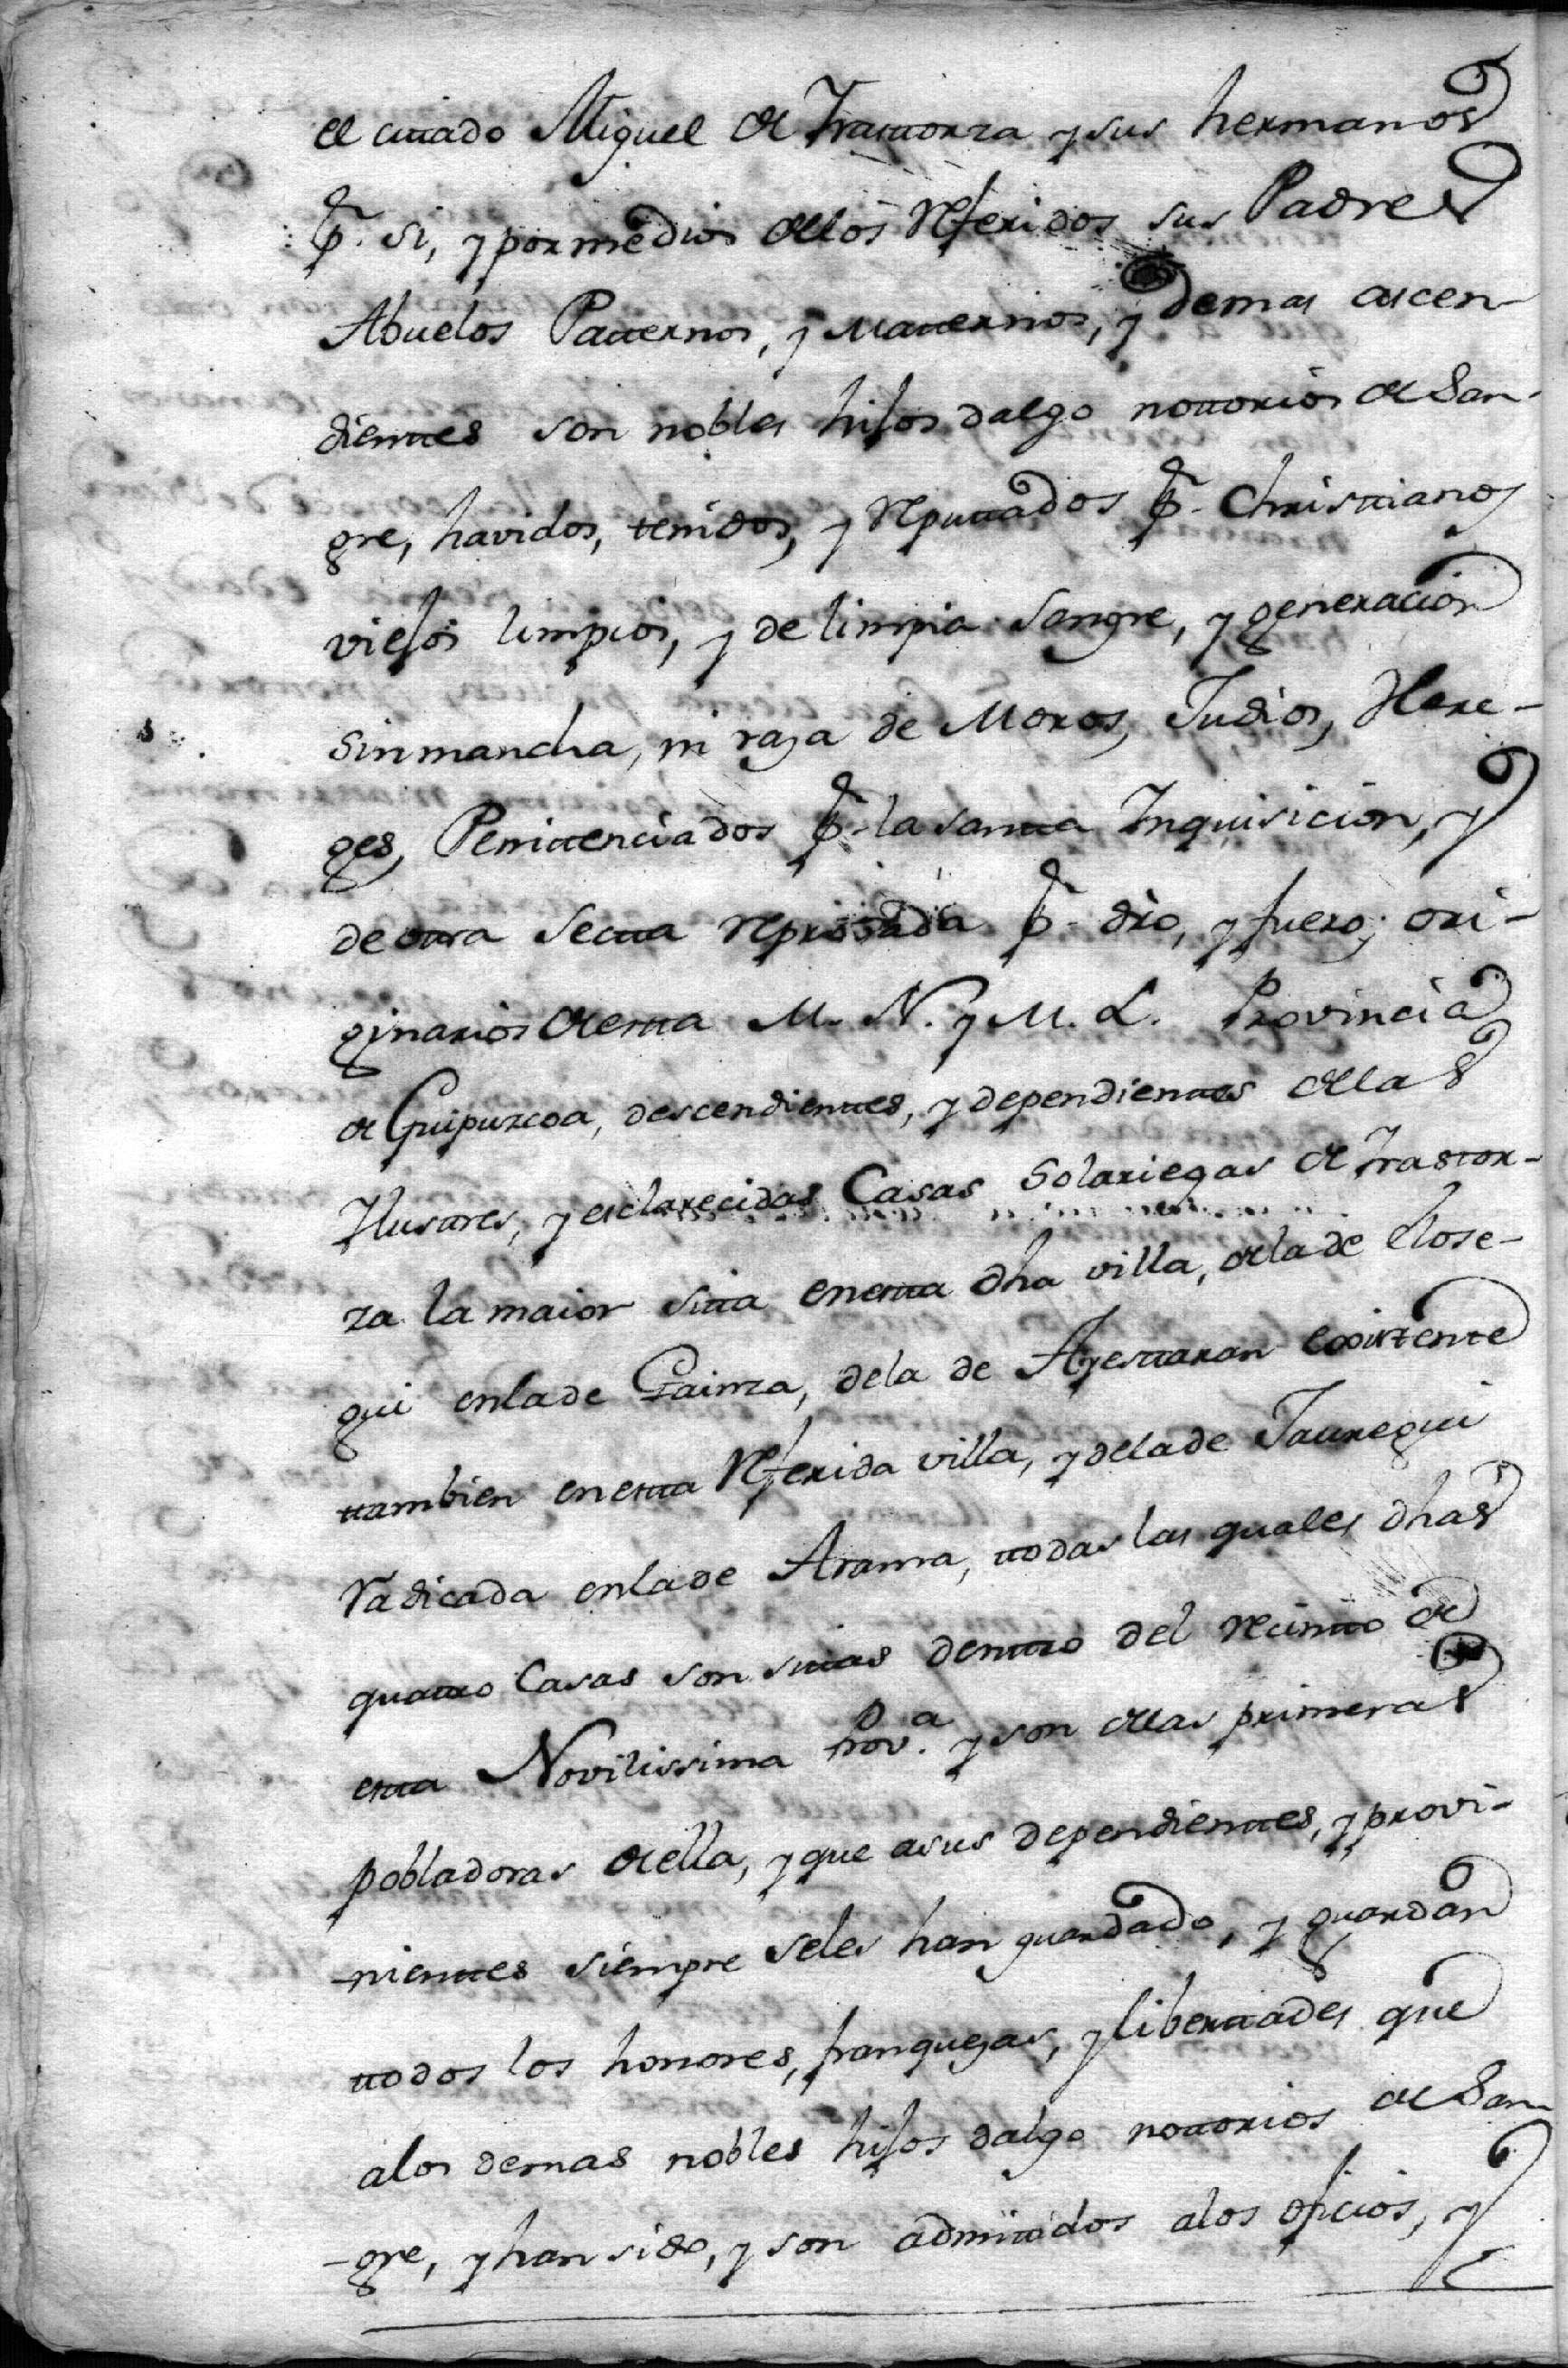 el cittado Miguel de Irattorza y sus hermanos
p.r si, y por medio de los referidos sus Padres
Abuelos Patternos, y Matternos, y demas ascen-
dienttes son nobles hijos dalgo nottorios de San-
gre, havidos, tenidos, y reputtados p.r Christtianos
viejos limpios, y de limpia sangre, y generacion
sin mancha, ni raza de Moros, Judios, Here-
ges, Penittenciados p.r la santta Inquisicion, y
de ottra Sectta reprobada p.r dro, y fuero; ori-
ginarios de estta M. N. y M. L. Provincia
de Guipuzcoa, descendienttes, y dependienttes de las
Ilustres, y esclarecidas Casas Solariegas de Irastor-
za la maior sitta en estta dha villa, de la de Elose-
gui en la de Gainza, de la de Ayesttaran existente
ttambien en estta referida villa, y de la de Jauregui
radicada en la de Arama, ttodas las quales dhas
quattro Casas son sittas denttro del recintto de
estta Novilissima Prov.a y son de las primeras
pobladoras de ella, y que a sus dependienttes, y provi-
nienttes siempre se les han guardado, y guardan
ttodos los honores, franquezas, y liberttades que
a los demas nobles hijos dalgo nottorios de San-
gre, y han sido, y son admittidos a los oficios, y